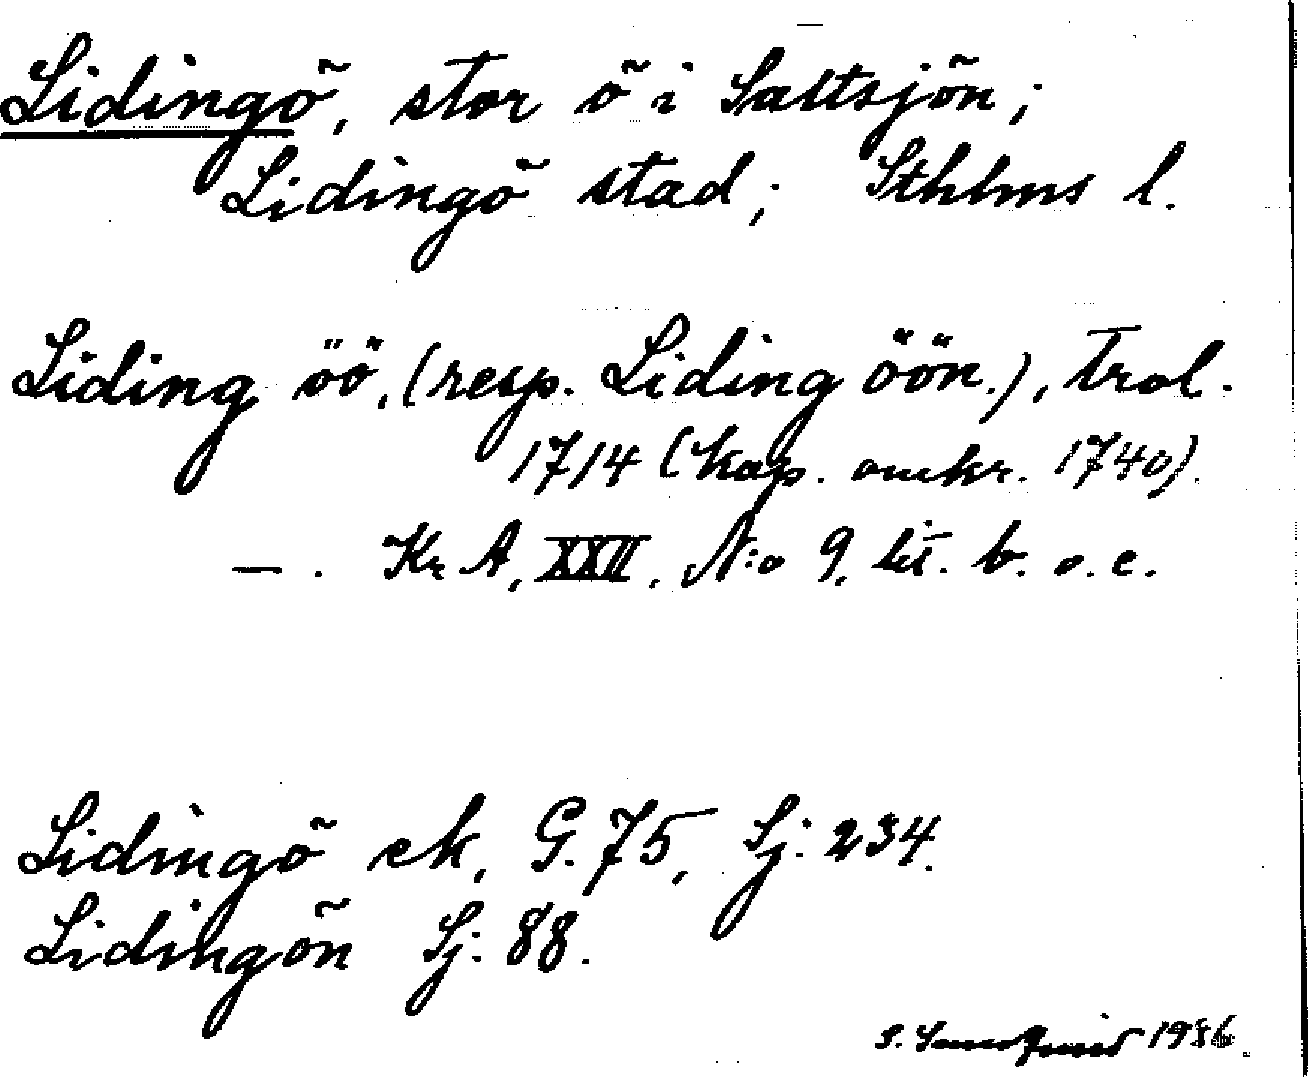 Lidingö, stor ö i Saltsjön;
Lidingö stad; Sthlms l.
Liding öö, (resp. Liding öön.), trol.
1714 (kap. omkr. 1740).
—. Kr A, XXII, N:o 9, lit. b. o. c.
Lidingö ek, G. 75, Sj: 234.
Lidingön Sj: 88.
S. 1936.